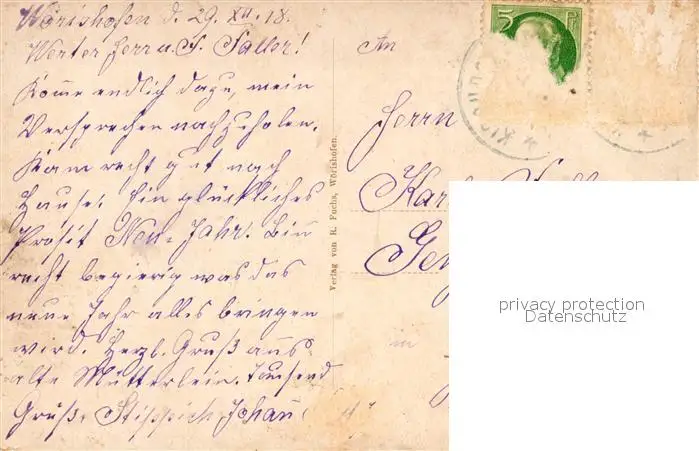 Wörishofen d. 29. XII. 18.
Werter Herr u. F. Faller!
Komme endlich dazu, mein
Versprechen nachzuholen.
Kam recht gut nach
Hause. Ein glückliches
Prosit Neu-Jahr. Bin
recht begierig was das
neue Jahr alles bringen
wird. Herzl. Gruß ans
alte Mütterlein. Tausend
Grüße
Johan
Verlag von R. Fuchs, Wörishofen.
5
An
Herrn
Karl
in
privacy protection
Datenschutz